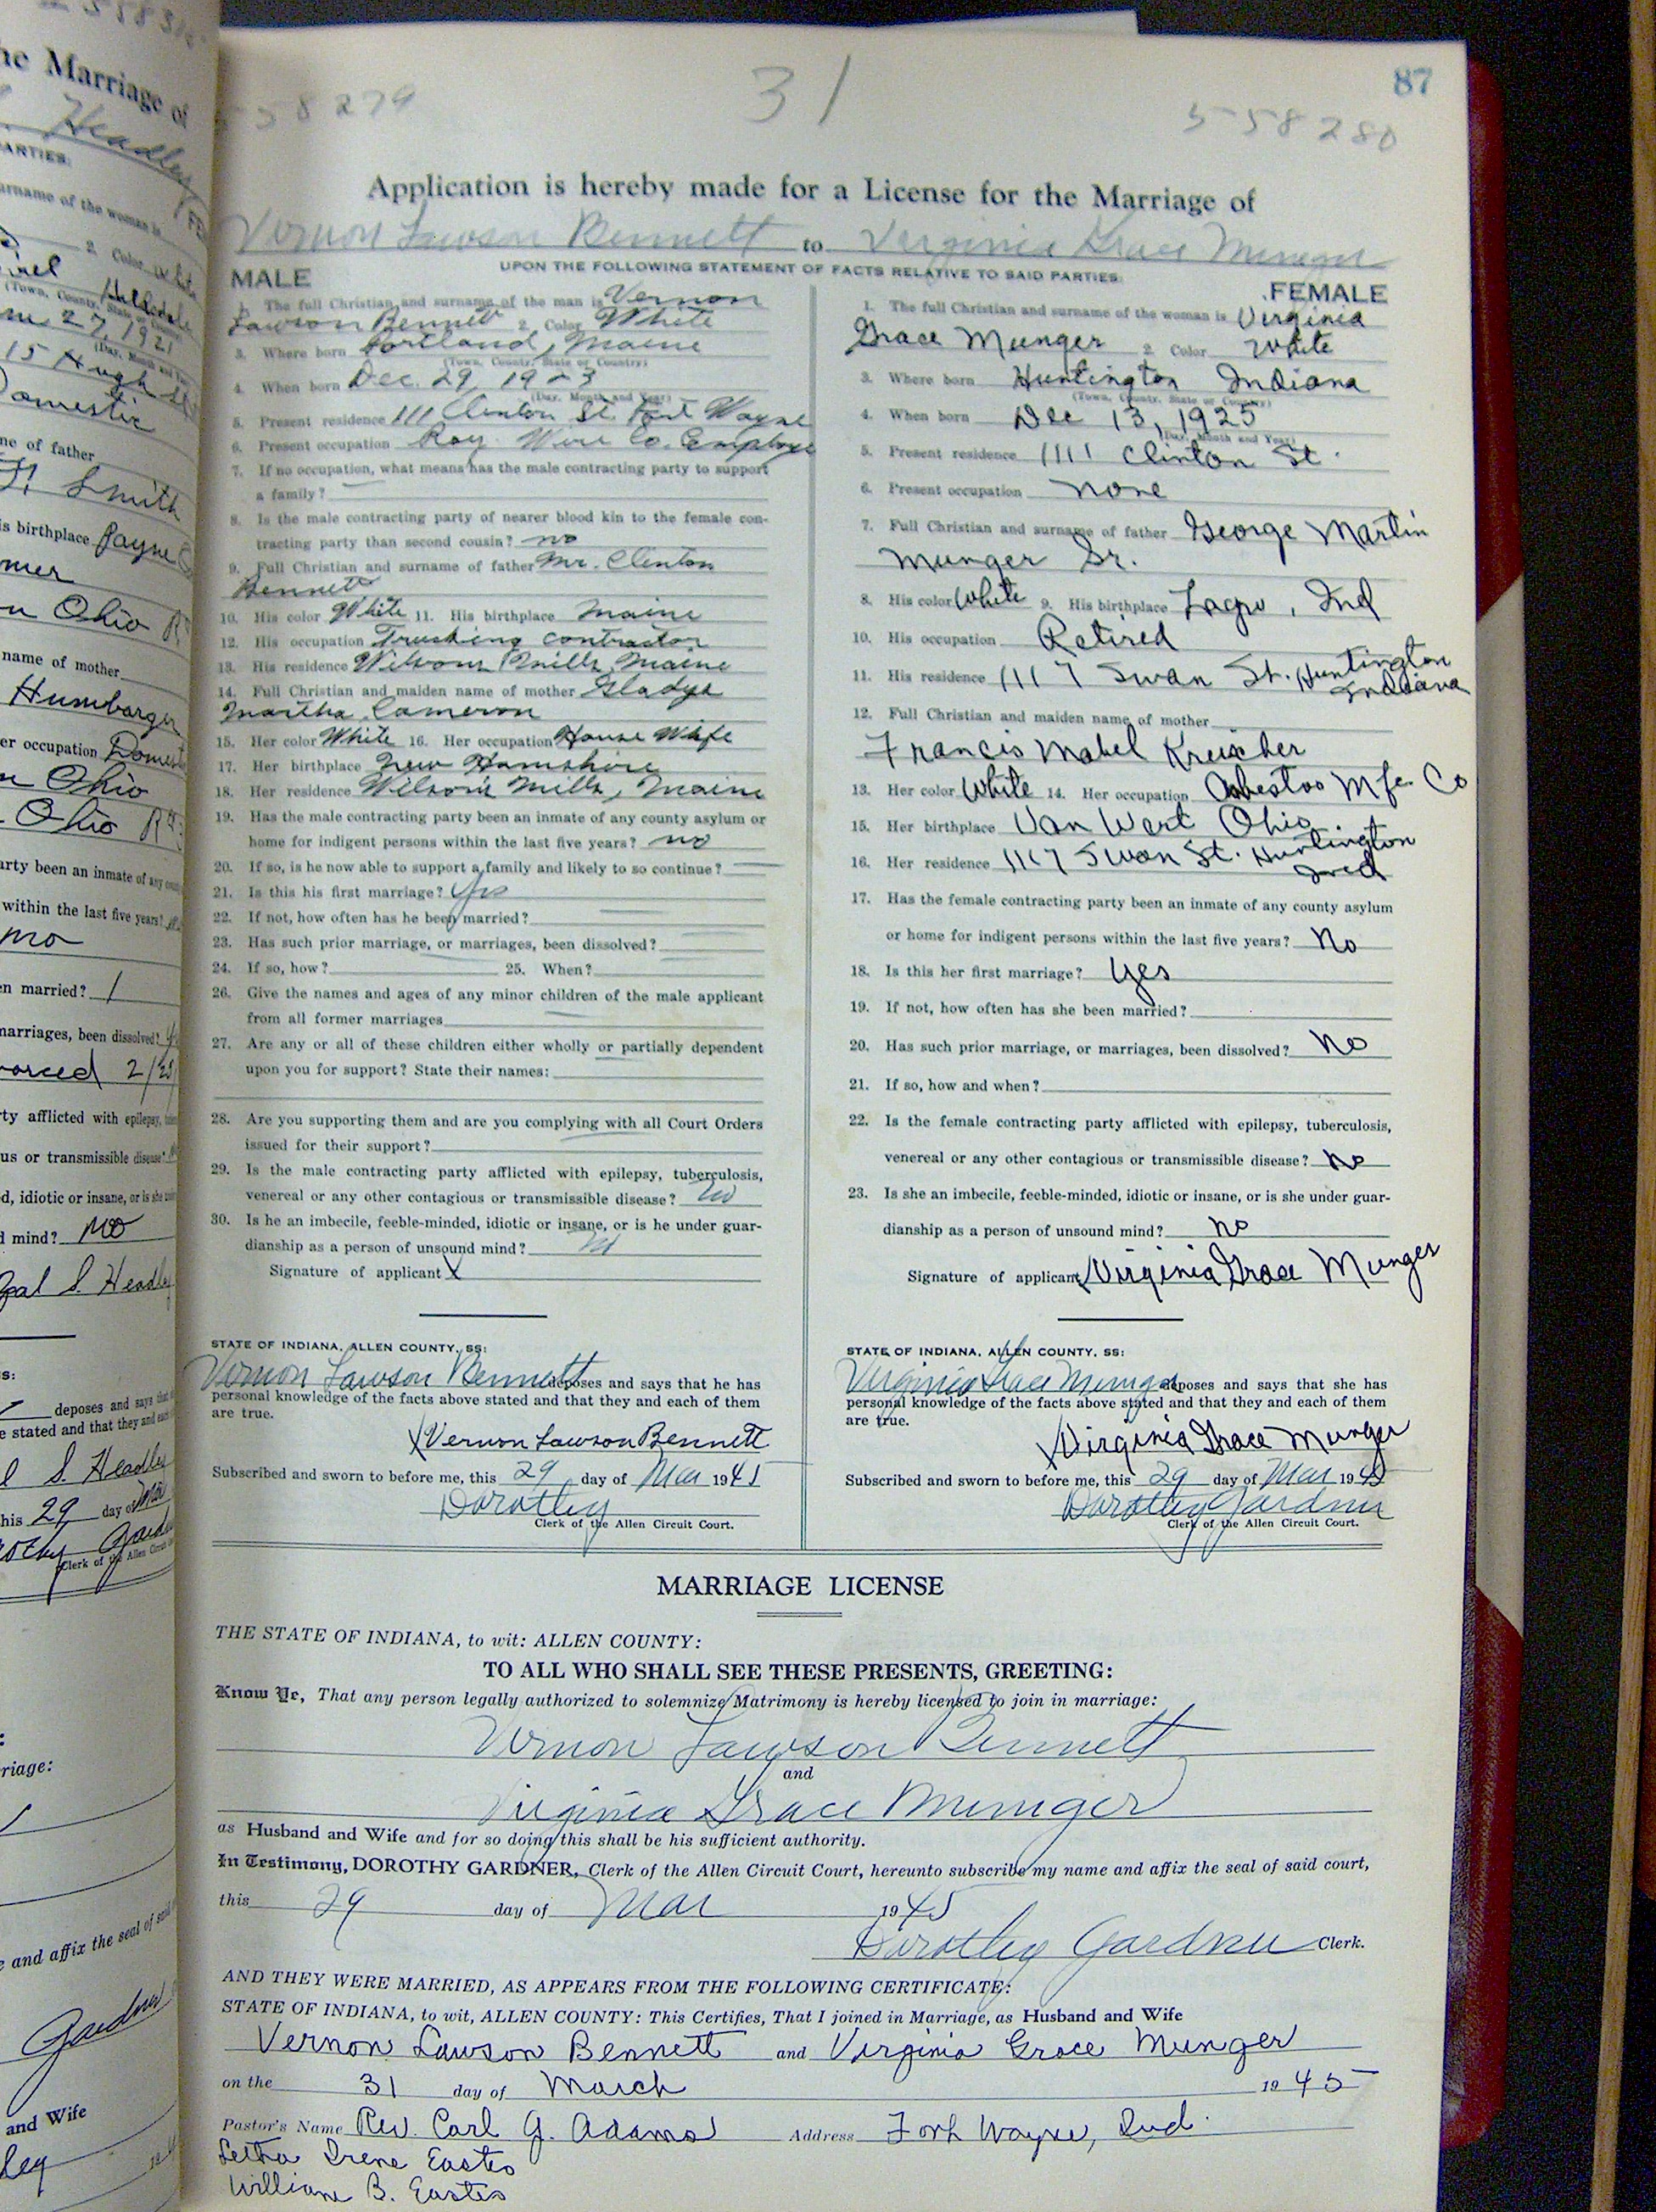 87
31
58279
558280
Application is hereby made for a License for the Marriage of
Vernon Lawson Bennett to Virginia Grace Munger
UPON THE FOLLOWING STATEMENT OF FACTS RELATIVE TO SAID PARTIES:
MALE
1. The full Christian and surname of the man is Vernon
Lawson Bennett 2. Color White
3. Where born Portland, Maine
(Town, County, State or Country)
4. When born Dec. 29, 1923
(Day, Month and Year)
5. Present residence 1111 Clinton St. Fort Wayne
6. Present occupation Ray Wire Co. Employe
7. If no occupation, what means has the male contracting party to support
a family?
8. Is the male contracting party of nearer blood kin to the female con-
tracting party than second cousin? no
9. Full Christian and surname of father Mr. Clinton
Bennett
10. His color White 11. His birthplace Maine
12. His occupation Trucking contractor
13. His residence Mills, Maine
14. Full Christian and maiden name of mother Gladys
Martha Cameron
15. Her color White 16. Her occupation House Wife
17. Her birthplace New Hamshire
18. Her residence Wilson's Mills, Maine
19. Has the male contracting party been an inmate of any county asylum or
home for indigent persons within the last five years? no
20. If so, is he now able to support a family and likely to so continue?
21. Is this his first marriage? Yes
22. If not, how often has he been married?
23. Has such prior marriage, or marriages, been dissolved?
24. If so, how? 25. When?
26. Give the names and ages of any minor children of the male applicant
from all former marriages
27. Are any or all of these children either wholly or partially dependent
upon you for support? State their names:
28. Are you supporting them and are you complying with all Court Orders
issued for their support?
29. Is the male contracting party afflicted with epilepsy, tuberculosis,
venereal or any other contagious or transmissible disease? no
30. Is he an imbecile, feeble-minded, idiotic or insane, or is he under guar-
dianship as a person of unsound mind? no
Signature of applicant X
STATE OF INDIANA, ALLEN COUNTY, SS:
Vernon Lawson Bennett deposes and says that he has
personal knowledge of the facts above stated and that they and each of them
are true.
X Vernon Lawson Bennett
Subscribed and sworn to before me, this 29 day of Mar 1945
Dorothy
Clerk of the Allen Circuit Court.
FEMALE
1. The full Christian and surname of the woman is Virginia
Grace Munger 2. Color White
3. Where born Huntington Indiana
(Town, County, State or Country)
4. When born Dec 13, 1925
(Day, Month and Year)
5. Present residence 1111 Clinton St.
6. Present occupation none
7. Full Christian and surname of father George Martin
Munger Sr.
8. His color White 9. His birthplace Lagro, Ind
10. His occupation Retired
11. His residence 1117 Swan St. Huntington
Indiana
12. Full Christian and maiden name of mother
Francis Mabel Kreischer
13. Her color White 14. Her occupation Asbestos Mfg. Co
15. Her birthplace Van Wert Ohio
16. Her residence 1117 Swan St. Huntington
Ind
17. Has the female contracting party been an inmate of any county asylum
or home for indigent persons within the last five years? No
18. Is this her first marriage? Yes
19. If not, how often has she been married?
20. Has such prior marriage, or marriages, been dissolved? No
21. If so, how and when?
22. Is the female contracting party afflicted with epilepsy, tuberculosis,
venereal or any other contagious or transmissible disease? No
23. Is she an imbecile, feeble-minded, idiotic or insane, or is she under guar-
dianship as a person of unsound mind? no
Signature of applicant X Virginia Grace Munger
STATE OF INDIANA, ALLEN COUNTY, SS:
Virginia Grace Munger deposes and says that she has
personal knowledge of the facts above stated and that they and each of them
are true.
X Virginia Grace Munger
Subscribed and sworn to before me, this 29 day of Mar 1945
Dorothy Gardner
Clerk of the Allen Circuit Court.
MARRIAGE LICENSE
THE STATE OF INDIANA, to wit: ALLEN COUNTY:
TO ALL WHO SHALL SEE THESE PRESENTS, GREETING:
Know Ye, That any person legally authorized to solemnize Matrimony is hereby licensed to join in marriage:
Vernon Lawson Bennett
and
Virginia Grace Munger
as Husband and Wife and for so doing this shall be his sufficient authority.
In Testimony, DOROTHY GARDNER, Clerk of the Allen Circuit Court, hereunto subscribe my name and affix the seal of said court,
this 29 day of Mar 1945
Dorothy Gardner Clerk.
AND THEY WERE MARRIED, AS APPEARS FROM THE FOLLOWING CERTIFICATE:
STATE OF INDIANA, to wit, ALLEN COUNTY: This Certifies, That I joined in Marriage, as Husband and Wife
Vernon Lawson Bennett and Virginia Grace Munger
on the 31 day of March 1945
Pastor's Name Rev. Carl G. Adams Address Fort Wayne, Ind.
Letha Irene Eastes
William B. Eastes